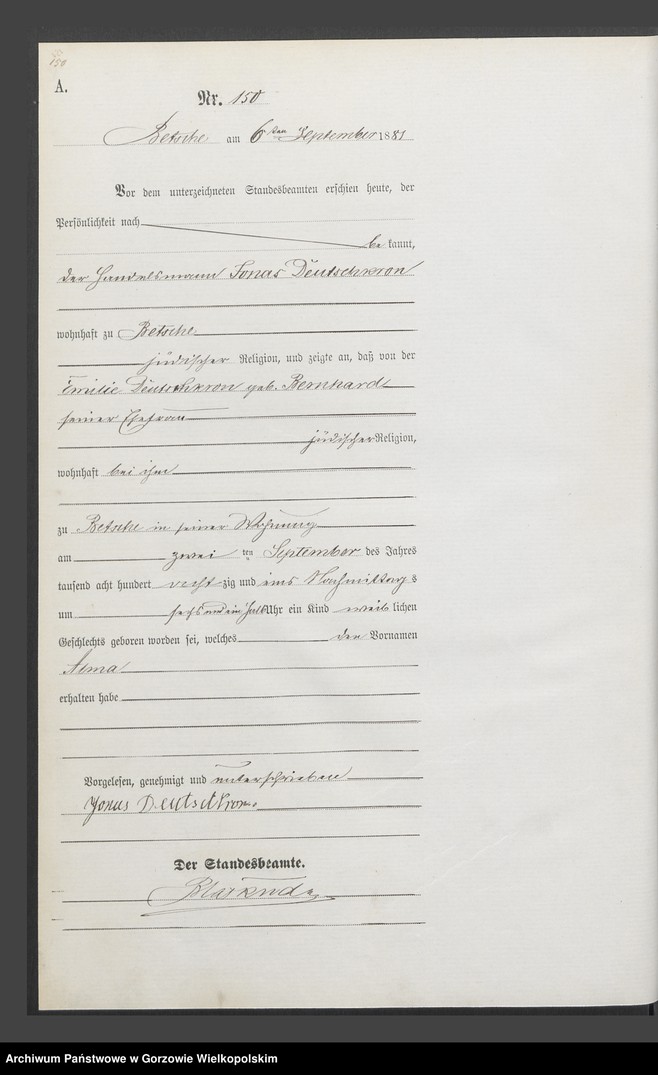 150
A.
Nr. 150
Betsche am 6ten September 1881
Vor dem unterzeichneten Standesbeamten erschien heute, der
Persönlichkeit nach
be kannt,
der Handelsmann Jonas Deutschkron
wohnhaft zu Betsche
jüdischer Religion, und zeigte an, daß von der
Emilie Deutschkron geb. Bernhard
seiner Ehefrau
jüdischer Religion,
wohnhaft bei ihm
zu Betsche in seiner Wohnung
am zwei ten September des Jahres
tausend acht hundert acht zig und eins Nachmittag s
um sechs und ein halb Uhr ein Kind weib lichen
Geschlechts geboren worden sei, welches den Vornamen
erhalten habe
Vorgelesen, genehmigt und unterschrieben
Jonas Deutschkron.
Der Standesbeamte.
Archiwum Państwowe w Gorzowie Wielkopolskim